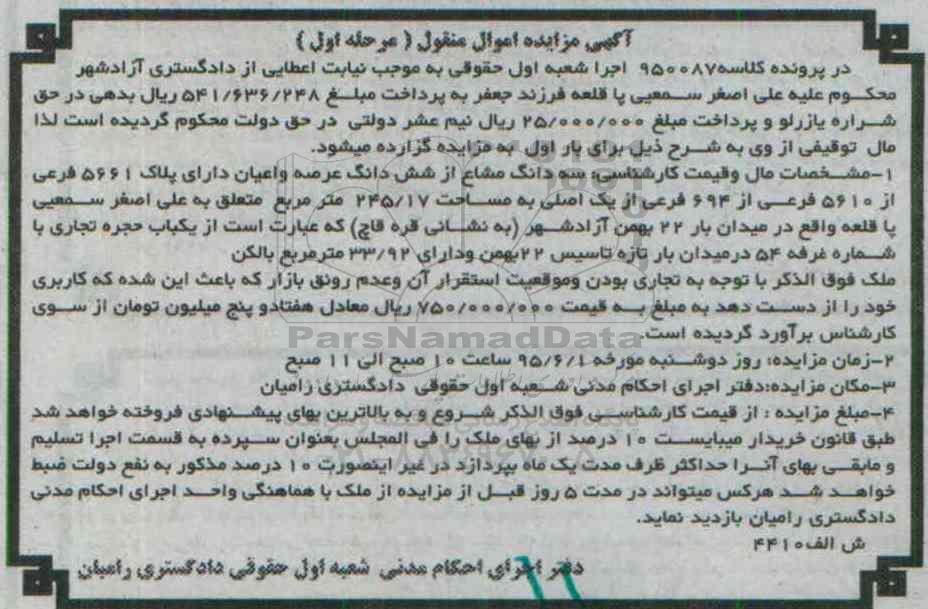 آگهی مزایده اموال منقول ( مرحله اول )
در پرونده کلاسه۹۵۰۰۸۷ اجرا شعبه اول حقوقی به موجب نیابت اعطایی از دادگستری آزادشهر
محکوم علیه علی اصغر سمعیی پا قلعه فرزند جعفر به پرداخت مبلغ ۵۴۱/۶۳۶/۲۴۸ ریال بدهی در حق
شراره یازرلو و پرداخت مبلغ ۲۵/۰۰۰/۰۰۰ ریال نیم عشر دولتی در حق دولت محکوم گردیده است لذا
مال توقیفی از وی به شرح ذیل برای بار اول به مزایده گزارده میشود.
۱-مشخصات مال وقیمت کارشناسی: سه دانگ مشاع از شش دانگ عرصه واعیان دارای پلاک ۵۶۶۱ فرعی
از ۵۶۱۰ فرعی از ۶۹۴ فرعی از یک اصلی به مساحت ۲۴۵/۱۷ متر مربع متعلق به علی اصغر سمعیی
پا قلعه واقع در میدان بار ۲۲ بهمن آزادشهر (به نشانی قره قاچ) که عبارت است از یکباب حجره تجاری با
شماره غرفه ۵۴ درمیدان بار تازه تاسیس ۲۲بهمن ودارای ۳۳/۹۲ مترمربع بالکن
ملک فوق الذکر با توجه به تجاری بودن وموقعیت استقرار آن وعدم رونق بازار که باعث این شده که کاربری
خود را از دست دهد به مبلغ به قیمت ۷۵۰/۰۰۰/۰۰۰ ریال معادل هفتادو پنج میلیون تومان از سوی
کارشناس برآورد گردیده است.
ParsNamadData
۲-زمان مزایده: روز دوشنبه مورخه ۹۵/۶/۱ ساعت ۱۰ صبح الی ۱۱ صبح
۳-مکان مزایده:دفتر اجرای احکام مدنی شعبه اول حقوقی دادگستری رامیان
۴-مبلغ مزایده : از قیمت کارشناسی فوق الذکر شروع و به بالاترین بهای پیشنهادی فروخته خواهد شد
طبق قانون خریدار میبایست ۱۰ درصد از بهای ملک را فی المجلس بعنوان سپرده به قسمت اجرا تسلیم
و مابقی بهای آنرا حداکثر ظرف مدت یک ماه بپردازد در غیر اینصورت ۱۰ درصد مذکور به نفع دولت ضبط
خواهد شد هرکس میتواند در مدت ۵ روز قبل از مزایده از ملک با هماهنگی واحد اجرای احکام مدنی
دادگستری رامیان بازدید نماید.
ش الف۴۴۱۰
دفتر اجرای احکام مدنی شعبه اول حقوقی دادگستری رامیان